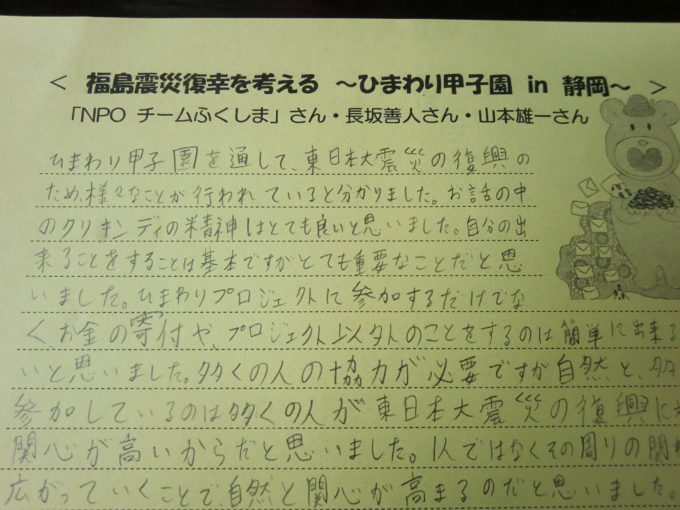 ＜ 福島震災復幸を考える ～ひまわり甲子園 in 静岡～ ＞
「NPO チームふくしま」さん・長坂善人さん・山本雄一さん
ひまわり甲子園を通して、東日本大震災の復興の
ため、様々なことが行われていると分かりました。お話の中
のクリキンディの精神はとても良いと思いました。自分の出
来ることをすることは基本ですがとても重要なことだと思
いました。ひまわりプロジェクトに参加するだけでな
くお金の寄付や、プロジェクト以外のことをするのは簡単に出来る
いと思いました。多くの人の協力が必要ですが自然と、多
参加しているのは多くの人が東日本大震災の復興に
関心が高いからだと思いました。1人ではなくその周りの関
広がっていくことで、自然と関心が高まるのだと思いました。